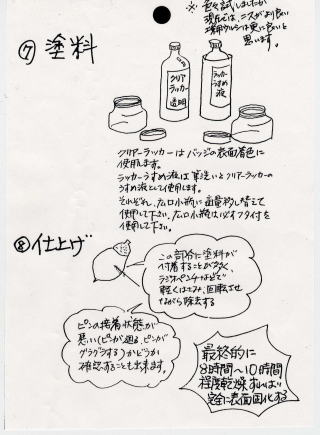 ※色々試しましたが
現在では、ニスがより良い
工業用ウルシは更に良いと
思います。
⑦塗料
クリアー
ラッカー
透明
ラッカー
うすめ
液
クリアーラッカーはバッジの表面着色に
使用します。
ラッカーうすめ液は筆洗いとクリアーラッカーの
うすめ液として使用します。
それぞれ、広口小瓶に適量移し替えて
使用して下さい。広口小瓶は必ずフタ付を
使用して下さい。
⑧仕上げ
この部分に塗料が
付着することが多く、
ラジオペンチなどで
軽くはさみ、回転させ
ながら除去する
ピンの接着状態が
悪い(ピンが廻る、ピンが
グラグラする)かどうか
確認することも出来ます。
最終的に
8時間〜10時間
程度乾燥すれば
完全に表面固化する